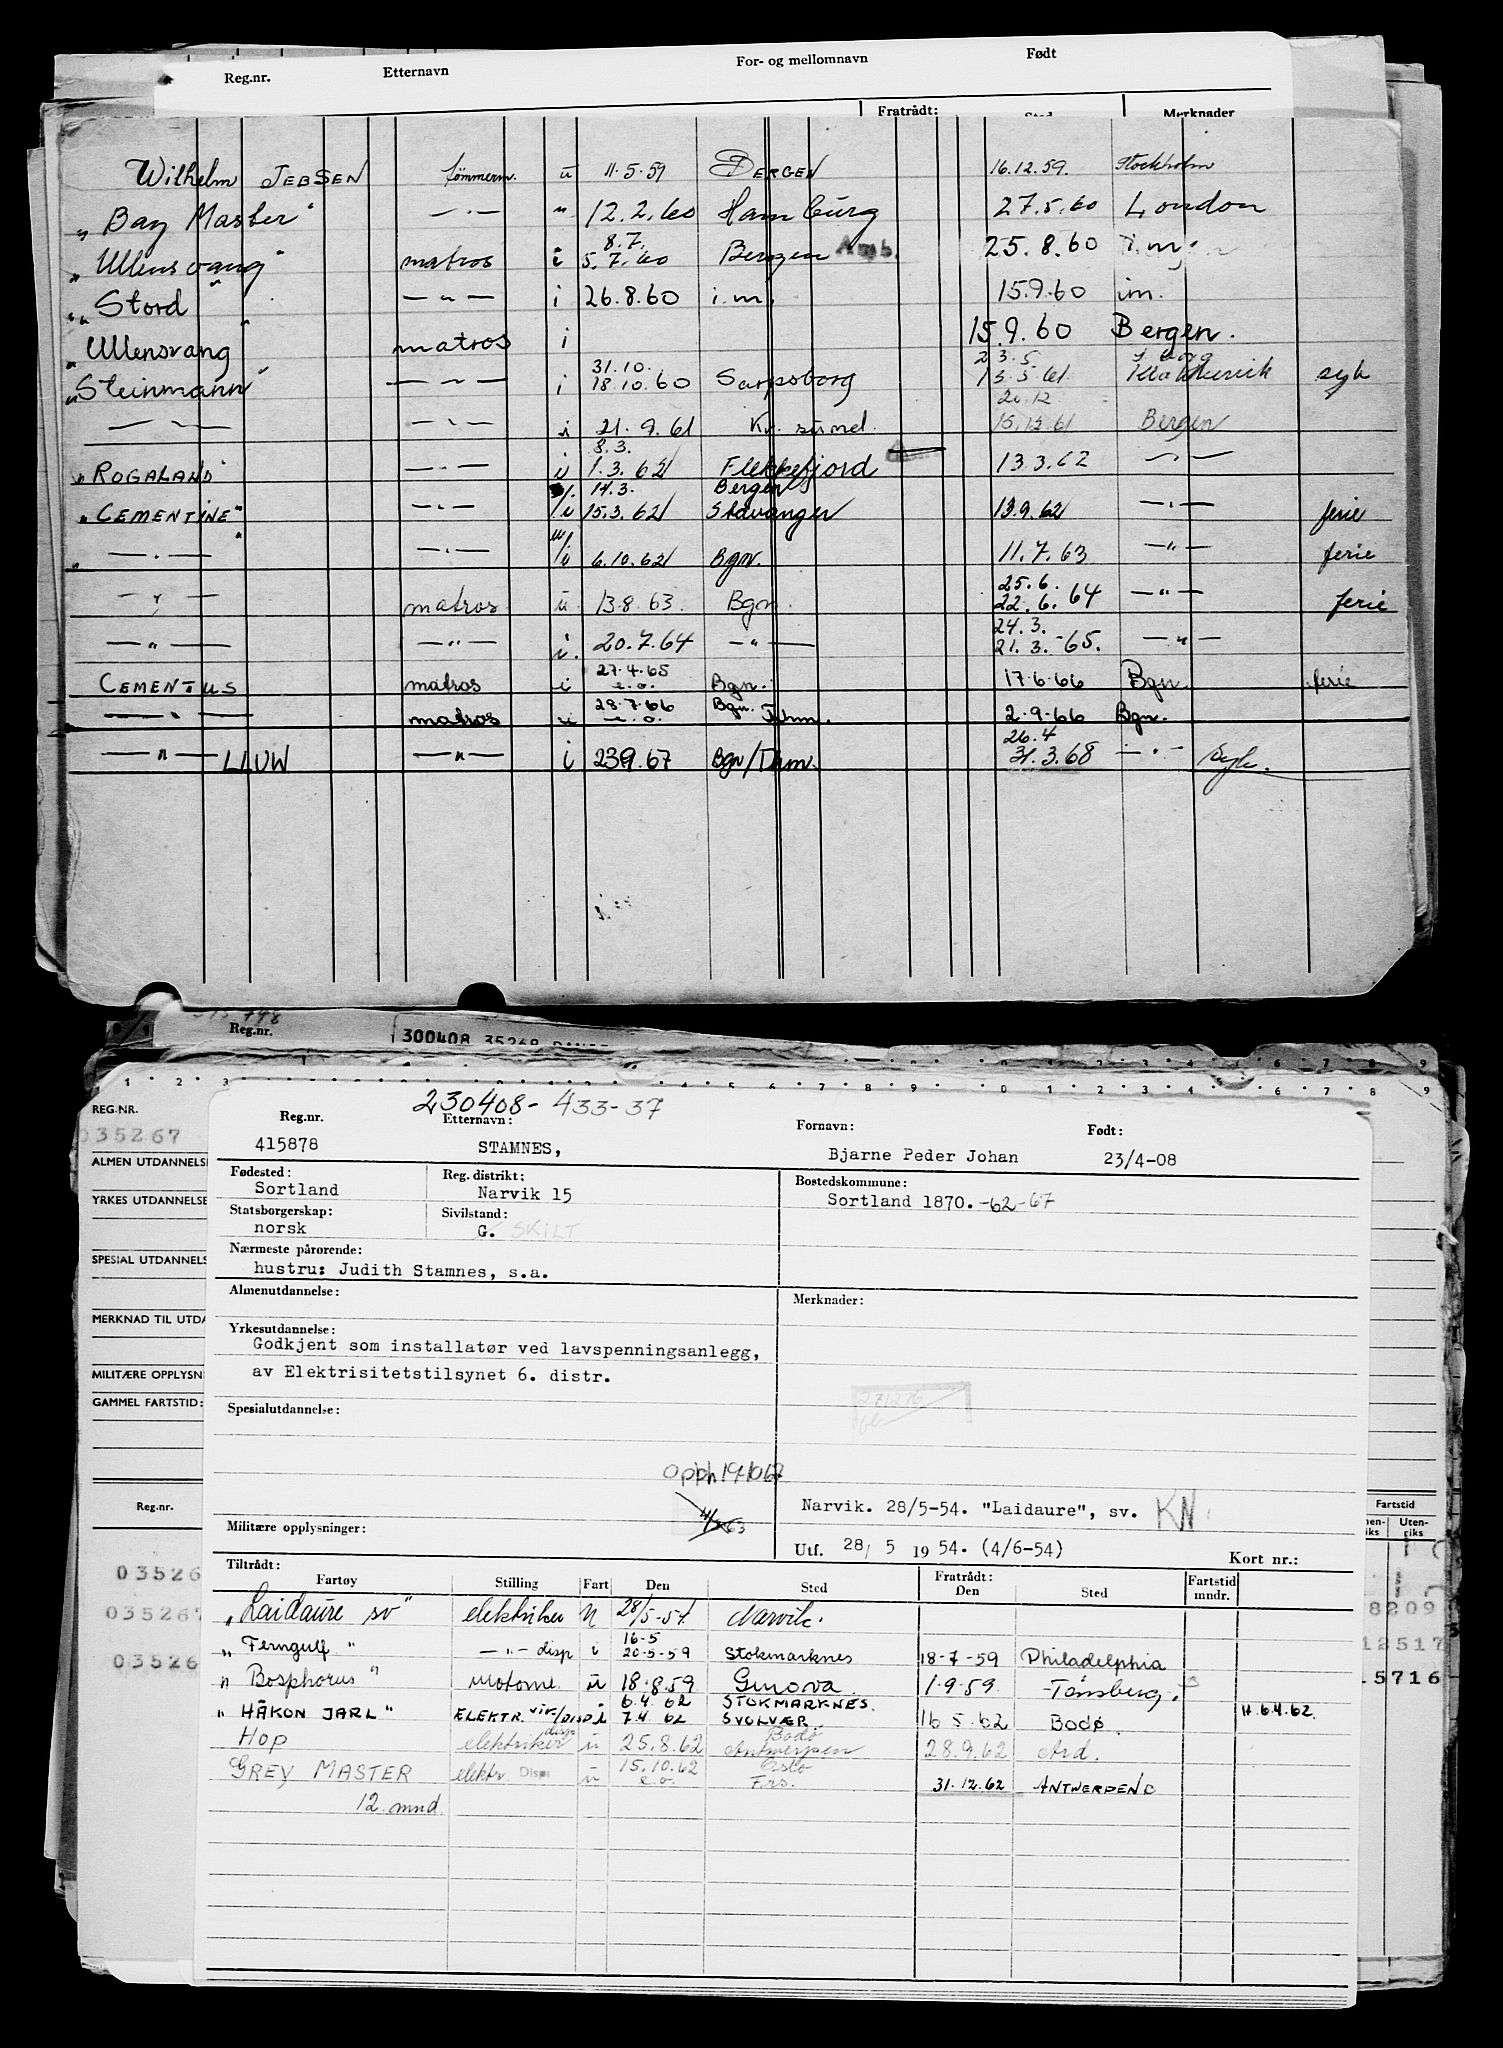 Reg.nr. Etternavn For- og mellomnavn Født
Fratrådt: Sted Merknader
Wilhelm JEBSEN tømmerm. u 11.5.59 BERGEN 16.12.59. Stockholm
"Bay Master" —"— " 12.2.60 Hamburg 27.5.60 London
8.7.
"Ullensvang" matros i 5.7.60 Bergen 25.8.60 i.m.
"Stord" —"— i 26.8.60 i.m. 15.9.60 im.
"Ullensvang" matros i 15.9.60 Bergen.
31.10. 23.5
"Steinmann" —"— i 18.10.60 Sarpsborg 13.5.61 syk
20.12
—"— —"— i 21.9.61 Kr. sund. 15.12.61 Bergen
8.3.
"ROGALAND" —"— i 1.3.62 Flekkefjord 13.3.62 —"—
14.3. Bergen
"CEMENTINE" —"— u/i 15.3.62 Stavanger 13.9.62 —"— ferie
—"— —"— u/i 6.10.62 Bgn. 11.7.63 —"— ferie
25.6.
—"— matros u 13.8.63. Bgn. 22.6.64 —"— ferie
24.3.
—"— —"— i. 20.7.64 —"— 21.3.-65. —"—
27.4.65
CEMENTUS matros i e.o. Bgn. 17.6.66 Bgn. ferie
28.7.66 Bgn.
—"— matros u e.o. Thm. 2.9.66 Bgn.
26.4
—"— LLUW —"— i 23.9.67 Bgn/Thm. 31.3.68 —"— syk.
Reg.nr. 300408 35268
1 2 3 4 5 6 7 8 9 0 1 2 3 4 5 6 7 8 9
REG.NR.
035267
ALMEN UTDANNELSE
YRKES UTDANNELSE
SPESIAL UTDANNELS
MERKNAD TIL UTDA
MILITÆRE OPPLYSN
GAMMEL FARTSTID:
Reg.nr.
03526
035267
03526
230408-433-37
Reg.nr. Etternavn: Fornavn: Født:
415878 STAMNES, Bjarne Peder Johan 23/4-08
Fødested: Reg. distrikt: Bostedskommune:
Sortland Narvik 15 Sortland 1870.-62-67
Statsborgerskap: Sivilstand:
norsk G. SKILT
Nærmeste pårørende:
hustru: Judith Stamnes, s.a.
Almenutdannelse: Merknader:
Yrkesutdannelse:
Godkjent som installatør ved lavspenningsanlegg,
av Elektrisitetstilsynet 6. distr.
271276
Spesialutdannelse:
Opph 19-10 67
Narvik. 28/5-54. "Laidaure", sv. KN.
Militære opplysninger:
Utf. 28/ 5 19 54. (4/6-54) Kort nr.:
Tiltrådt: Fratrådt: Fartstid
Fartøy Stilling Fart Den Sted Den Sted mndr.
"Laidaure sv" elektriker N 28/5-54 Narvik.
16-5
"Ferngulf" —"— disp i 20-5-59 Stokmarknes 18-7-59 Philadelphia
"Bosphorus" Motorm. u 18.8.59 Genova 1.9.59. Tønsberg.
6.4.62 STOKMARKNES.
"HÅKON JARL" ELEKTR. vik/DISP i 7.4.62 SVOLVÆR 16.5.62 BODØ. H.6.4.62.
disp Bodø
HOP elektriker u 25.8.62 Antwerpen 28.9.62 Ard.
15.10.62 Oslo
GREY MASTER elektr. Disp u e.o. Frs. 31.12.62 ANTWERPEN
12 mnd.
Fartstid
Uten-
riks
8209
12517
.5716